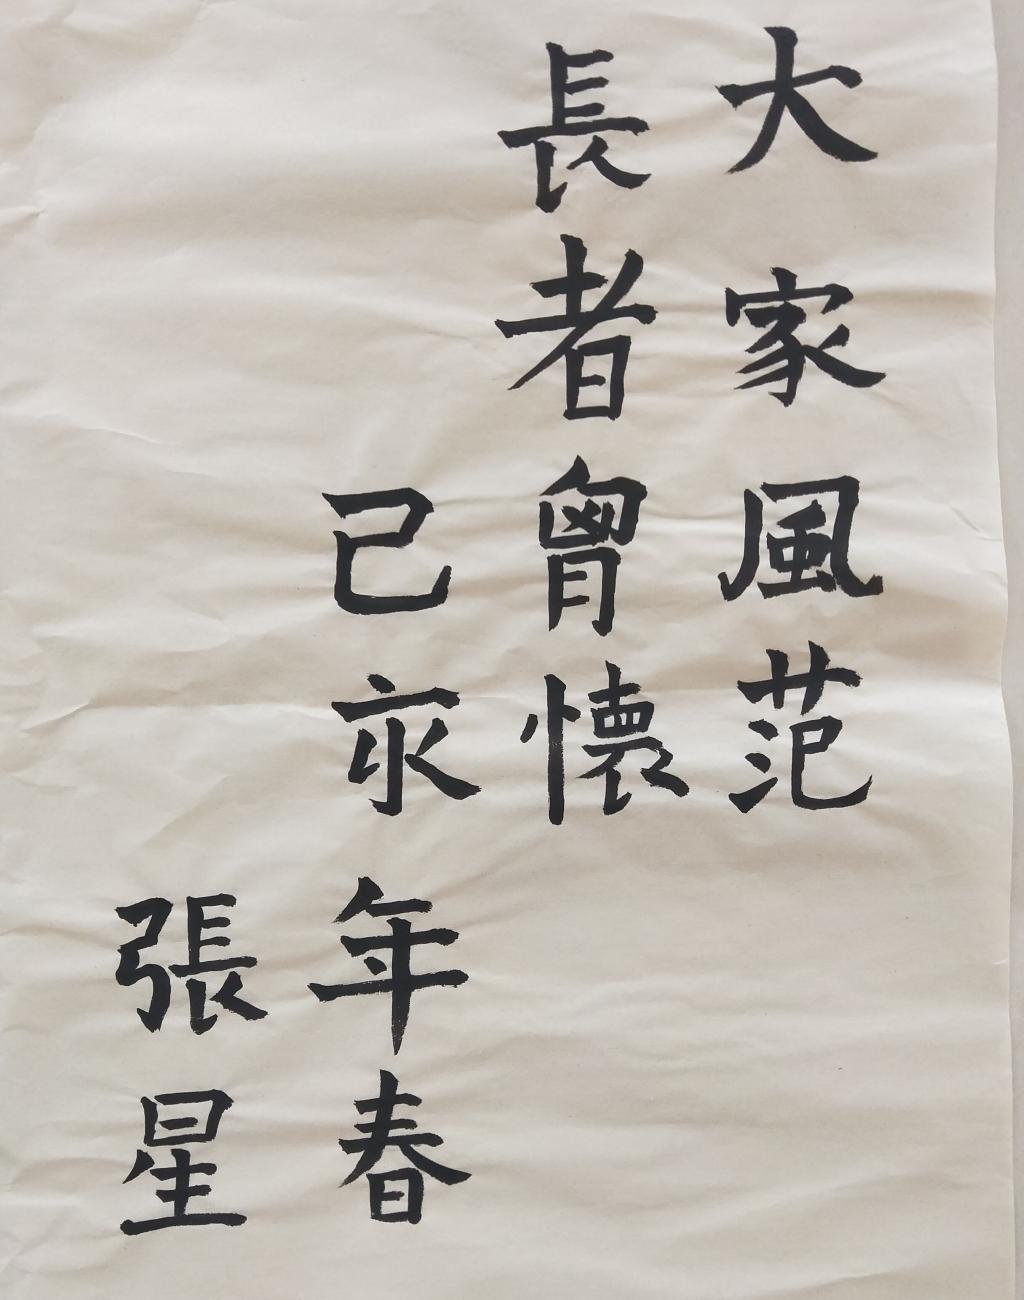 大家風范
長者胷懷
己亥年春
張星